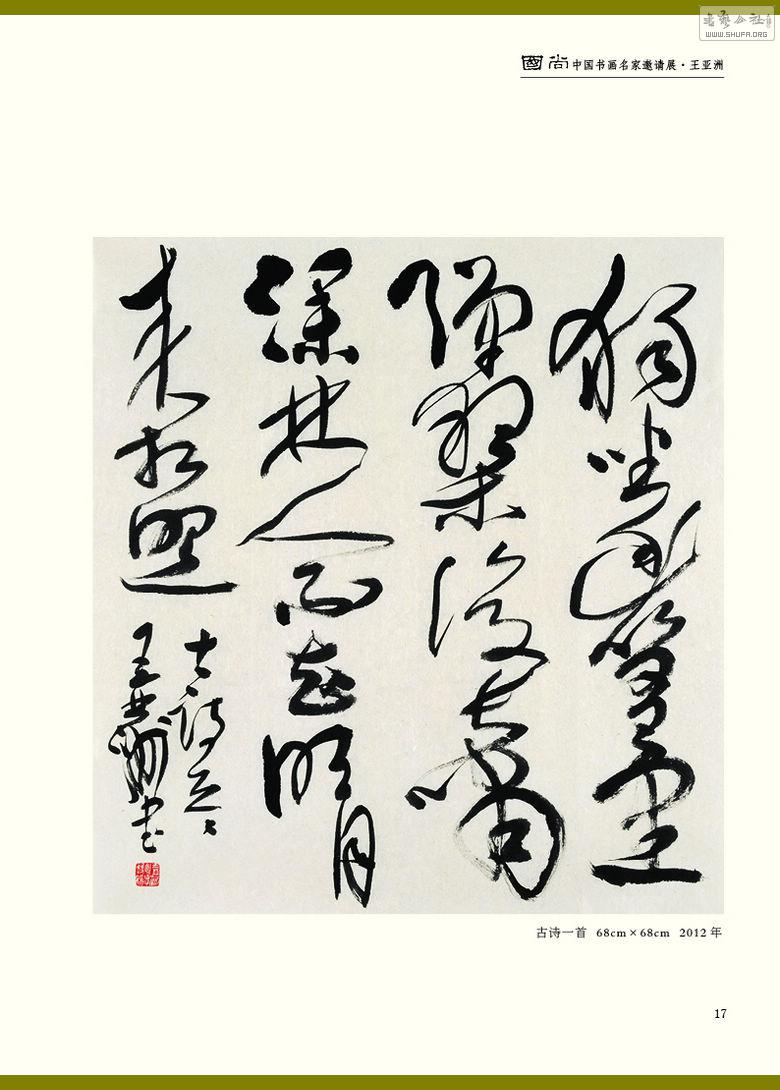 书艺公社
WWW.SHUFA.ORG
國尚中国书画名家邀请展·王亚洲
獨坐幽篁里
彈琴復長嘯
深林人不知明月
來相照
古詩一首
王亞洲書
古诗一首 68cm×68cm 2012年
17